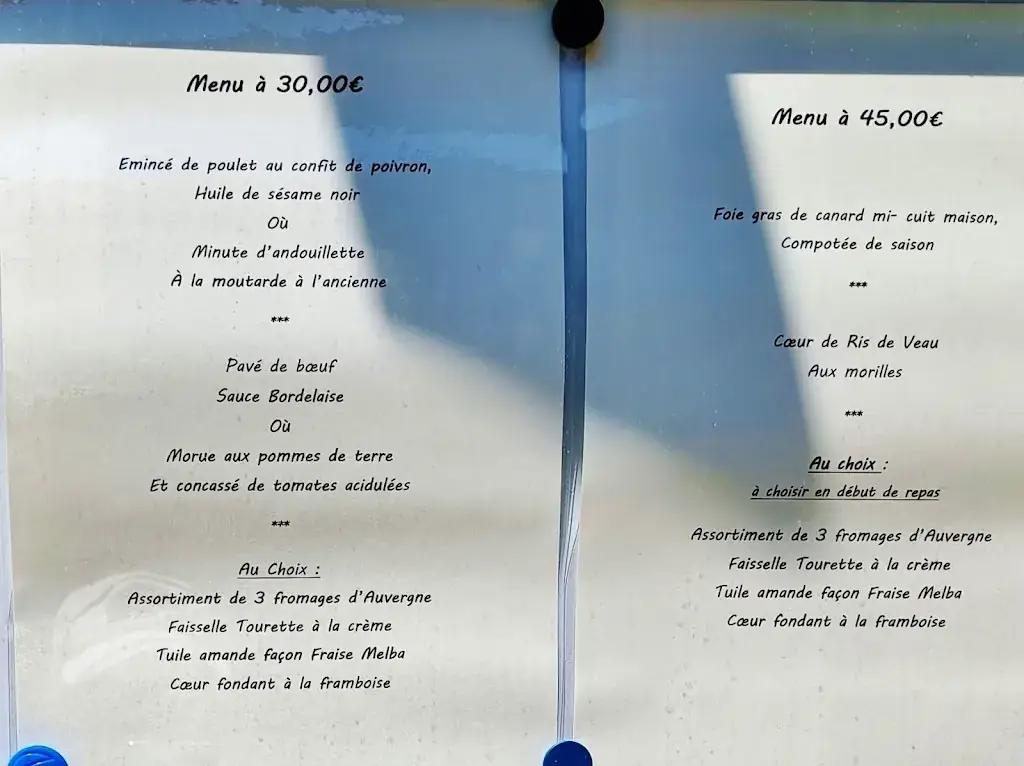 Menu à 30,00€
Emincé de poulet au confit de poivron,
Huile de sésame noir
Où
Minute d'andouillette
À la moutarde à l'ancienne
***
Pavé de bœuf
Sauce Bordelaise
Où
Morue aux pommes de terre
Et concassé de tomates acidulées
***
Au Choix :
Assortiment de 3 fromages d'Auvergne
Faisselle Tourette à la crème
Tuile amande façon Fraise Melba
Cœur fondant à la framboise
Menu à 45,00€
Foie gras de canard mi- cuit maison,
Compotée de saison
***
Cœur de Ris de Veau
Aux morilles
***
Au choix :
à choisir en début de repas
Assortiment de 3 fromages d'Auvergne
Faisselle Tourette à la crème
Tuile amande façon Fraise Melba
Cœur fondant à la framboise